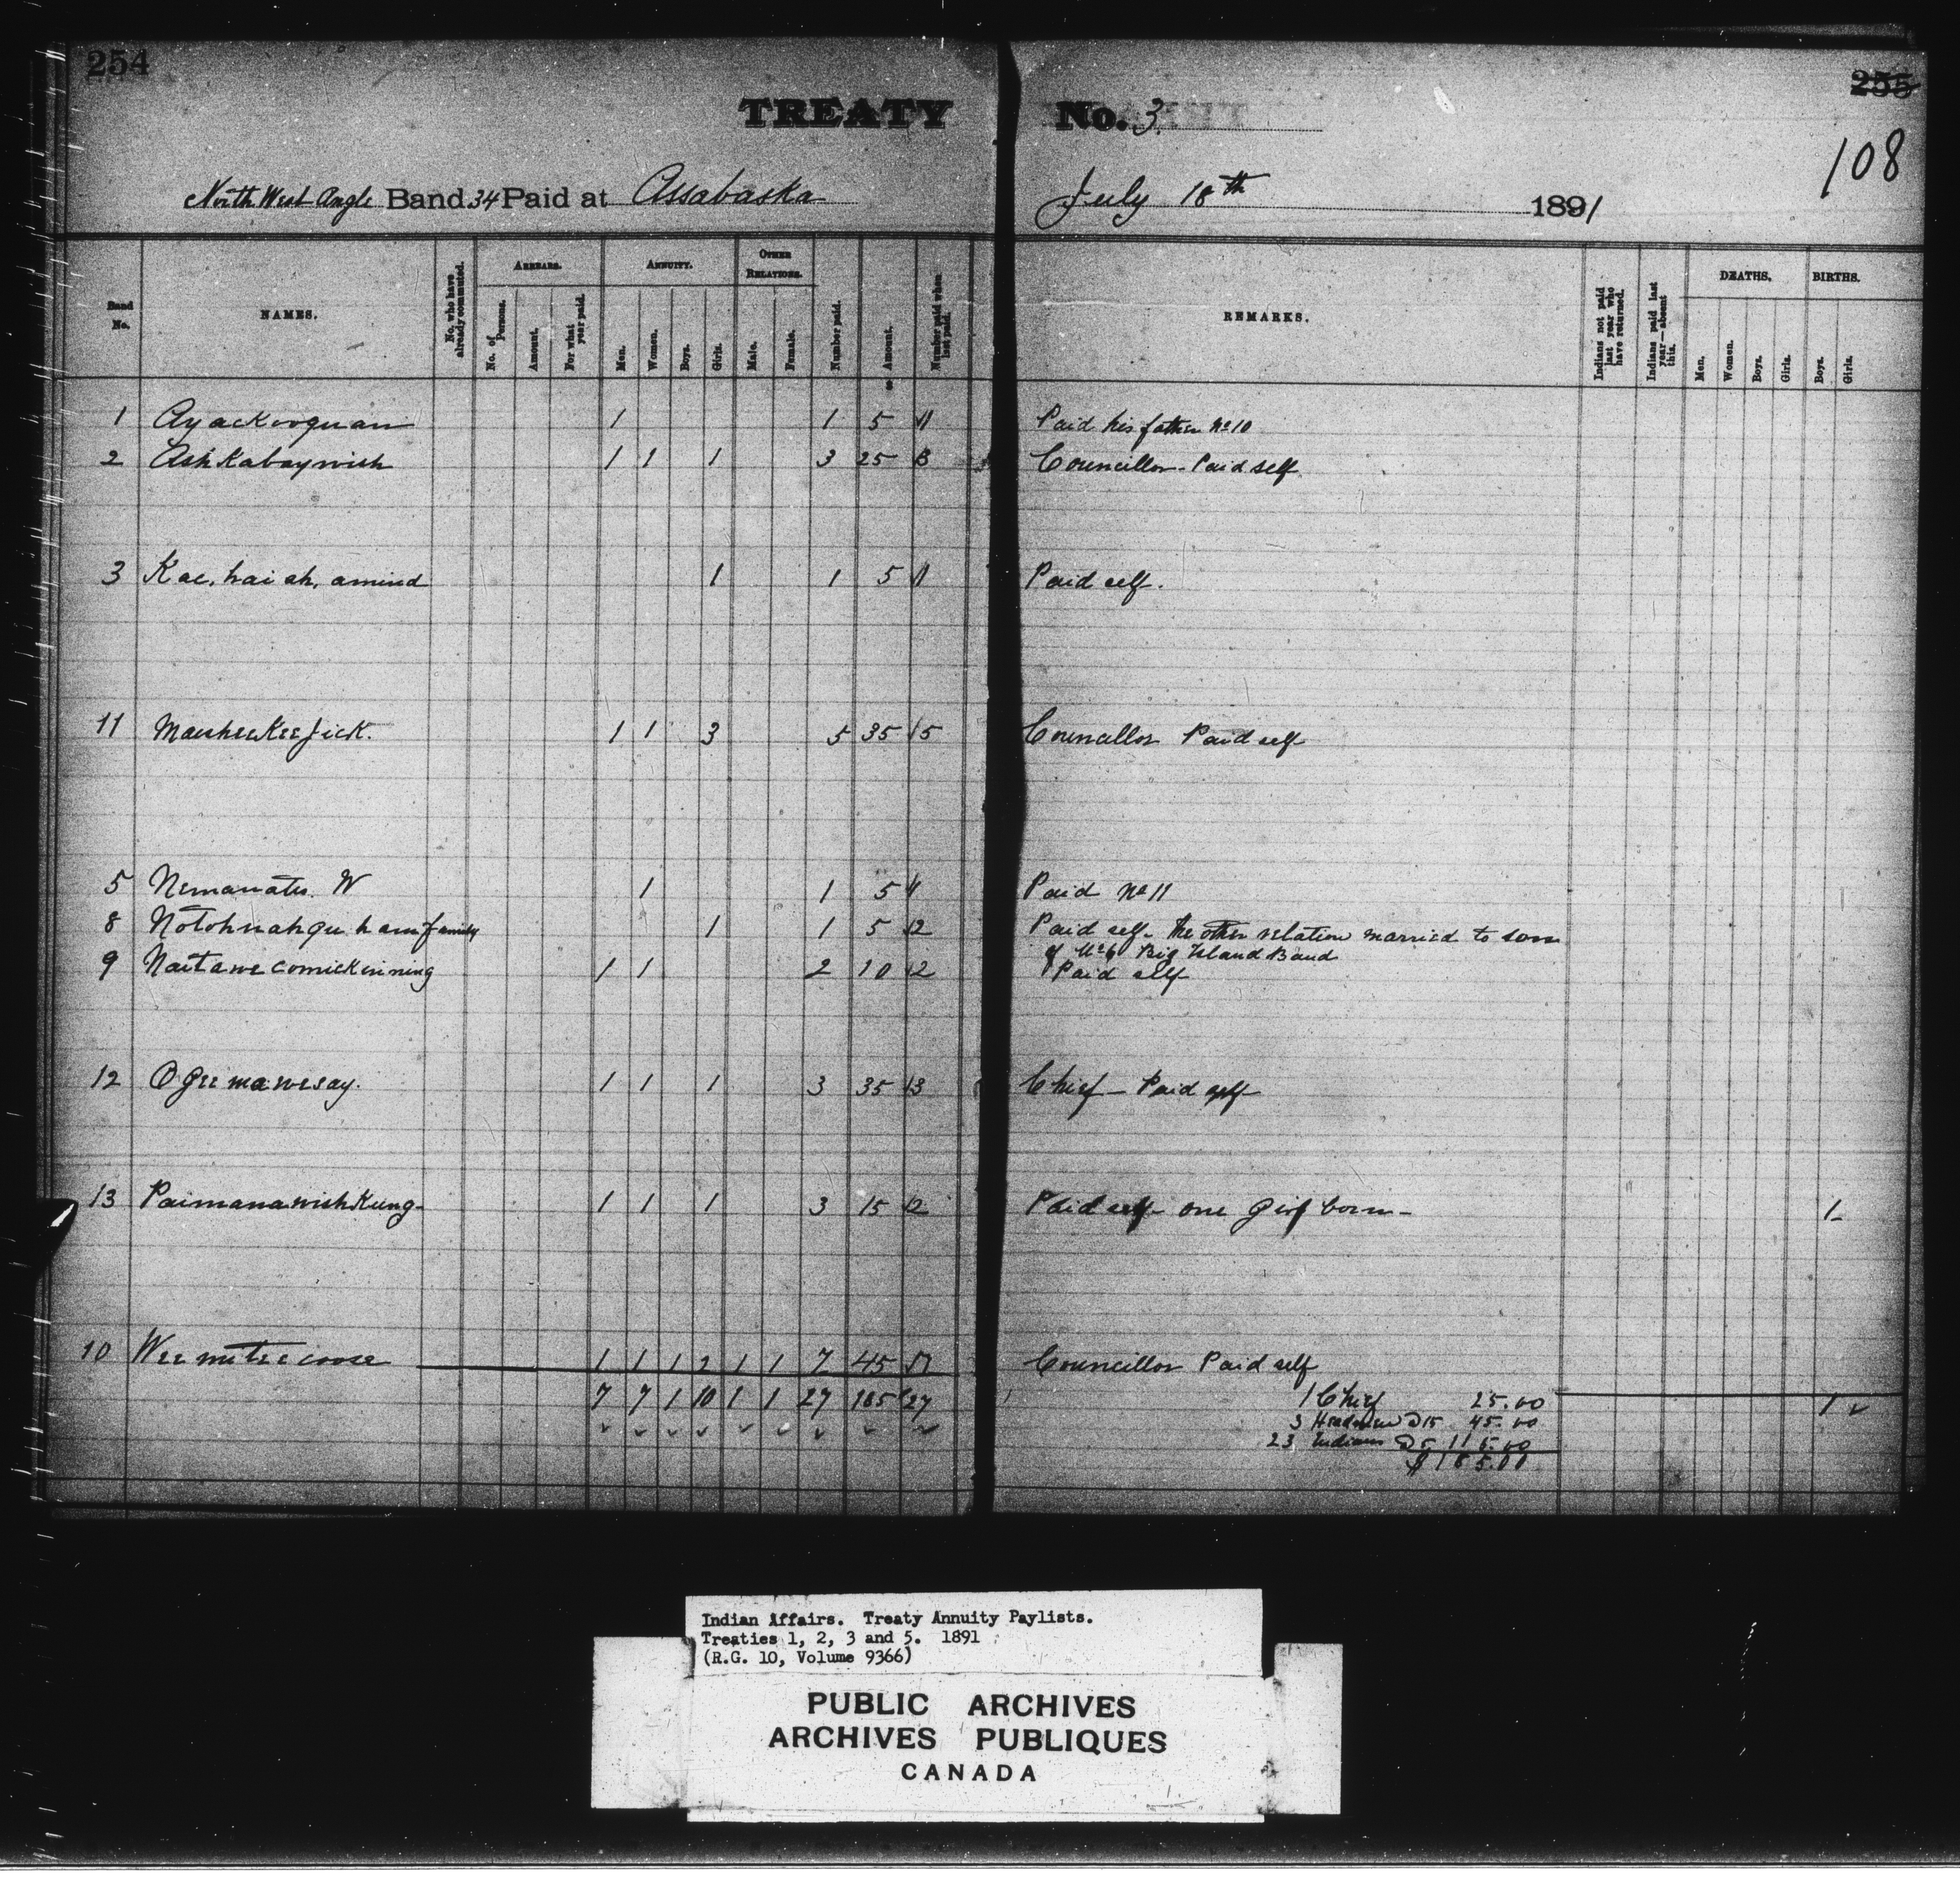 254
255
108
TREATY No. 3.
North West Angle Band 34 Paid at Assabaska July 18th 1891
Band No. NAMES. No. who have already commuted. ARREARS. No. of Persons. Amount. For what year paid. ANNUITY. Men. Women. Boys. Girls. OTHER RELATIONS. Male. Female. Number paid. Amount. Number paid when last paid. REMARKS. Indians not paid last year who have returned. Indians paid last year—absent this. DEATHS. Men. Women. Boys. Girls. BIRTHS. Boys. Girls.
1 Ayackooquan 1 1 5 1 Paid his father No 10
2 Ashkabaywish 1 1 1 3 25 3 Councillor - Paid self
3 Kac. hai ah. amind 1 1 5 1 Paid self.
11 Maisheekeejick. 1 1 3 5 35 5 Councillor Paid self
5 Nemanates. W 1 1 5 1 Paid No 11
8 Notohnahqu ham family 1 1 5 2 Paid self - the other relation married to son
of No 6 Big Island Band
9 Naitawecomickinning 1 1 2 10 2 Paid self
12 Ogeemawesay. 1 1 1 3 35 3 Chief - Paid self -
13 Paimanawishkung - 1 1 1 3 15 2 Paid self - one girl born - 1
10 Weemiteecoose 1 1 1 2 1 1 7 45 7 Councillor Paid self
7 7 1 10 1 1 27 185 27 1 Chief 25.00 1
3 Headmen @ 15 45.00
23 Indians @ 5 115.00
$185.00
Indian Affairs. Treaty Annuity Paylists.
Treaties 1, 2, 3 and 5. 1891
(R.G. 10, Volume 9366)
PUBLIC ARCHIVES
ARCHIVES PUBLIQUES
CANADA